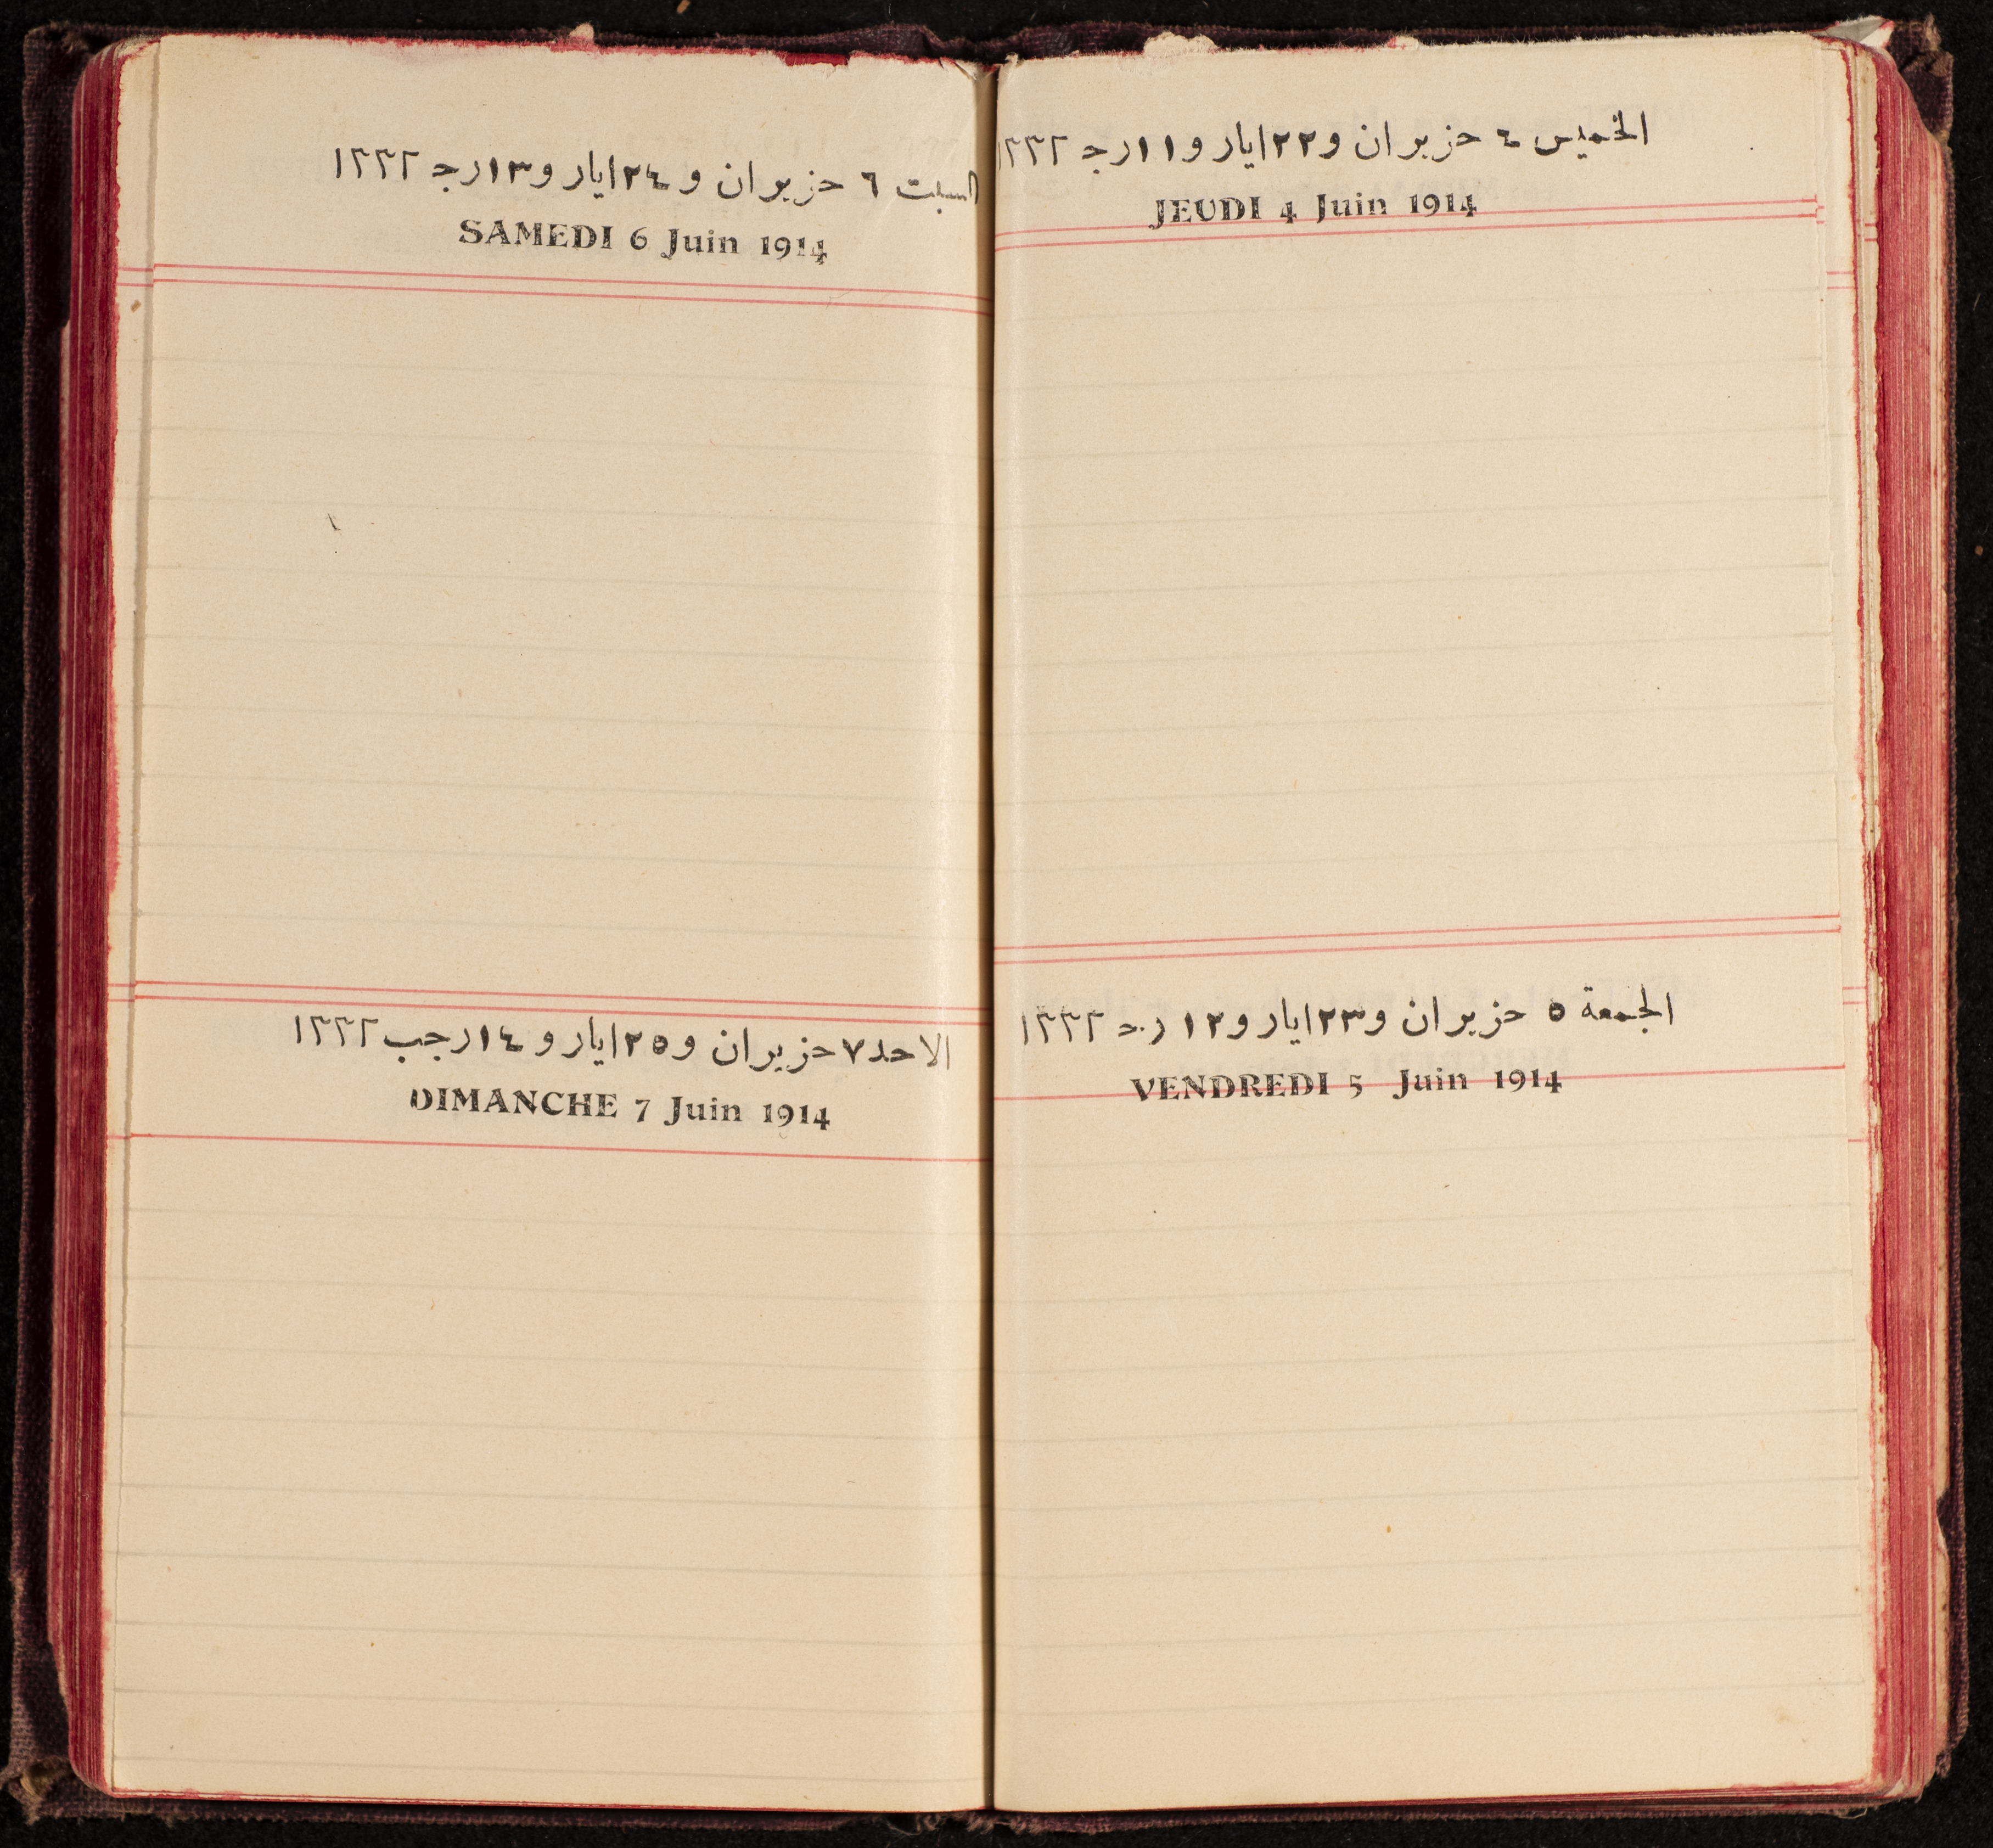 الخميس ٤ حزيران و٢٢ ايار و١١ رجـ ١٣٣٢
JEUDI 4 Juin 1914
الجمعة ٥ حزيران و٢٣ ايار و١٢ رجـ ١٣٣٢
VENDREDI 5 Juin 1914
السبت ٦ حزيران و ٢٤ ايار و١٣ رجـ ١٣٣٢
SAMEDI 6 Juin 1914
الاحد ٧ حزيران و٢٥ ايار و ١٤ رجب ١٣٣٢
DIMANCHE 7 Juin 1914